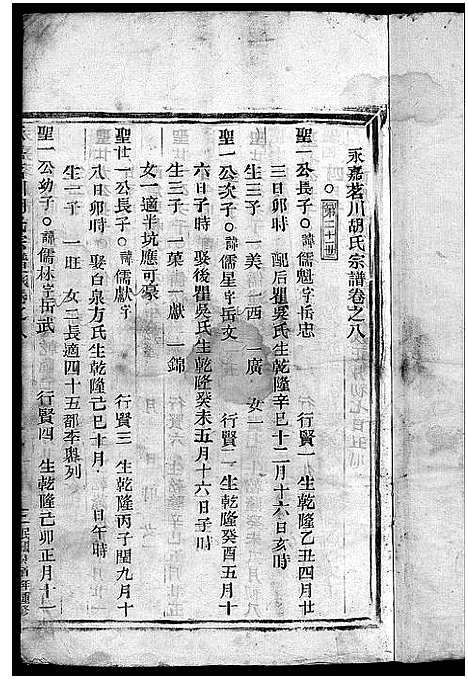 永嘉茗川胡氏宗譜卷之八
○第二十一世
聖一公長子○諱儒魁字岳忠 行賢一 生乾隆乙丑四月廿
三日卯時 配后瞿吳氏生乾隆辛巳十二月十六日亥時
生三子 一美 一西 一廣 女一
聖一公次子○諱儒星字岳文 行賢二 生乾隆癸酉五月十
六日子時 娶後瞿吳氏生乾隆癸未五月十六日子時
生三子 一菓 一獻 一錦
女一適半坑應可豪
聖仕一公長子○諱儒獻字 行賢三 生乾隆丙子閏九月十
八日卯時 娶白泉方氏生乾隆己巳十月 日午時
生一子 一旺 女二長適四十五都李聯列
聖一公幼子○諱儒林字岳武 行賢四 生乾隆己卯正月十一